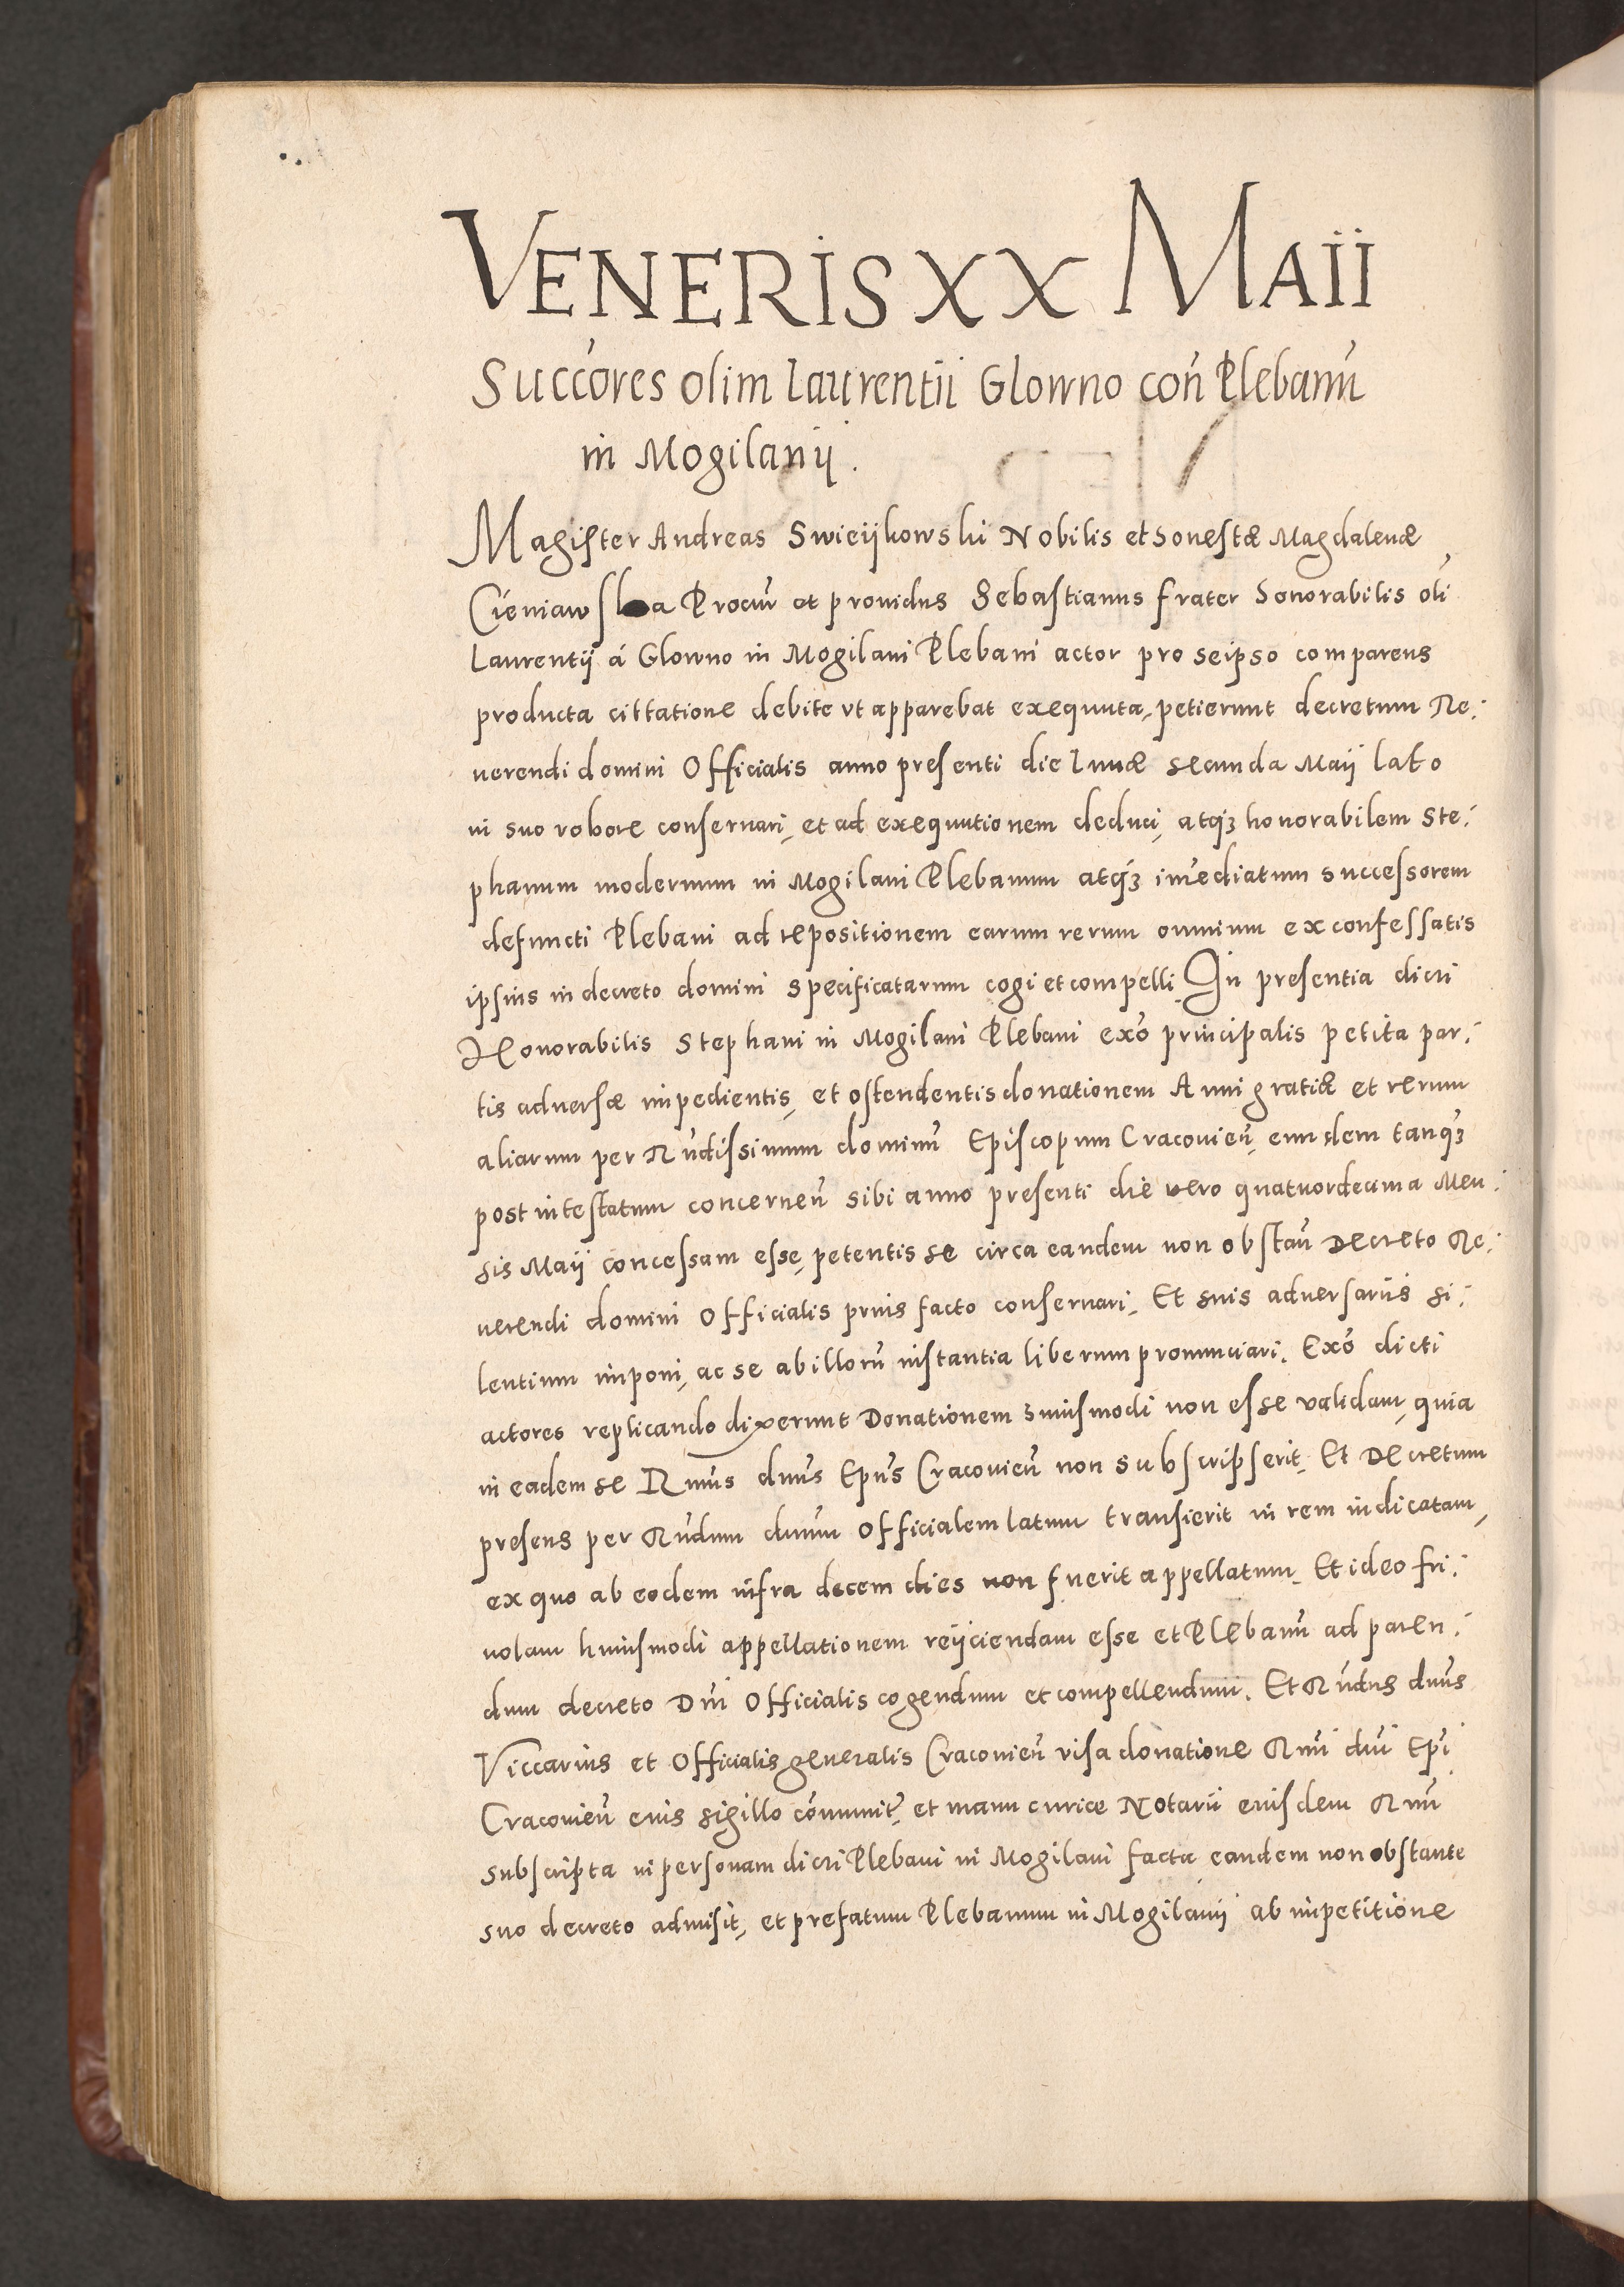 VENERIS XX MAII
Succo͞res olim Laurentii Glowno con͞ Plebanu͞
in Mogilanÿ.
Magister Andreas Swieijkowski Nobilis et honestæ Magdalenæ
Cieniawska Procur͞ et providus Sebastianus frater honorabilis oli͞
Laurentij á Glowno in Mogilani Plebani actor pro seipso comparens
producta cittatione debite vt apparebat exequuta, petierunt decretum Re⁏
uerendi domini Officialis anno presenti die Lunæ secunda Maij lato
in suo robore conseruari, et ad exequutionem deduci, atq3 honorabilem Ste⁏
phanum modernum in Mogilani Plebanum atq3 im͞ediatum successorem
defuncti Plebani ad repositionem earum rerum omnium ex confessatis
ipsius in decreto domini specificatarum cogi et compelli. In presentia dicti
Honorabilis Stephani in Mogilani Plebani exo͞ principalis petita par⁏
tis aduersæ impedientis, et ostendentis donationem Anni gratiæ et rerum
aliarum per Rn͞dissimum dominu͞ Episcopum Cracouien͞, eundem tanq3
post intestatum concernen͞ sibi anno presenti die vero quatuordecima Men⁏
sis Maij concessam esse, petentis se circa eandem non obstan͞ Decreto Re⁏
uerendi domini Officialis prius facto conseruari, Et suis aduersariis si⁏
lentium imponi, ac se ab illoru͞ instantia liberum pronunciari. Exo͞ dicti
actores replicando dixerunt Donationem huiusmodi non esse validam, quia
in eadem se Rmus͞ dnus͞ Epus͞ Cracouien͞ non subscripserit, Et Decretum
presens per Rn͞dum dnum͞ Officialem latum transierit in rem iudicatam,
ex quo ab eodem infra decem dies non fuerit appellatum. Et ideo fri⁏
uolam huiusmodi appellationem reijciendam esse et Plebanu͞ ad paren⁏
dum decreto Dni͞ Officialis cogendum et compellendum. Et Rn͞dus dnus͞
Viccarius et Officialis generalis Cracouien͞ visa donatione Rmi͞ dni͞ Epi͞
Cracouien͞ eius sigillo co͞munit͞, et manu curiæ Notarii eiusdem Rmi͞
subscripta in personam dicti Plebani in Mogilani facta, eandem non obstante
suo decreto admisit, et prefatum Plebanum in Mogilanij ab impetitione